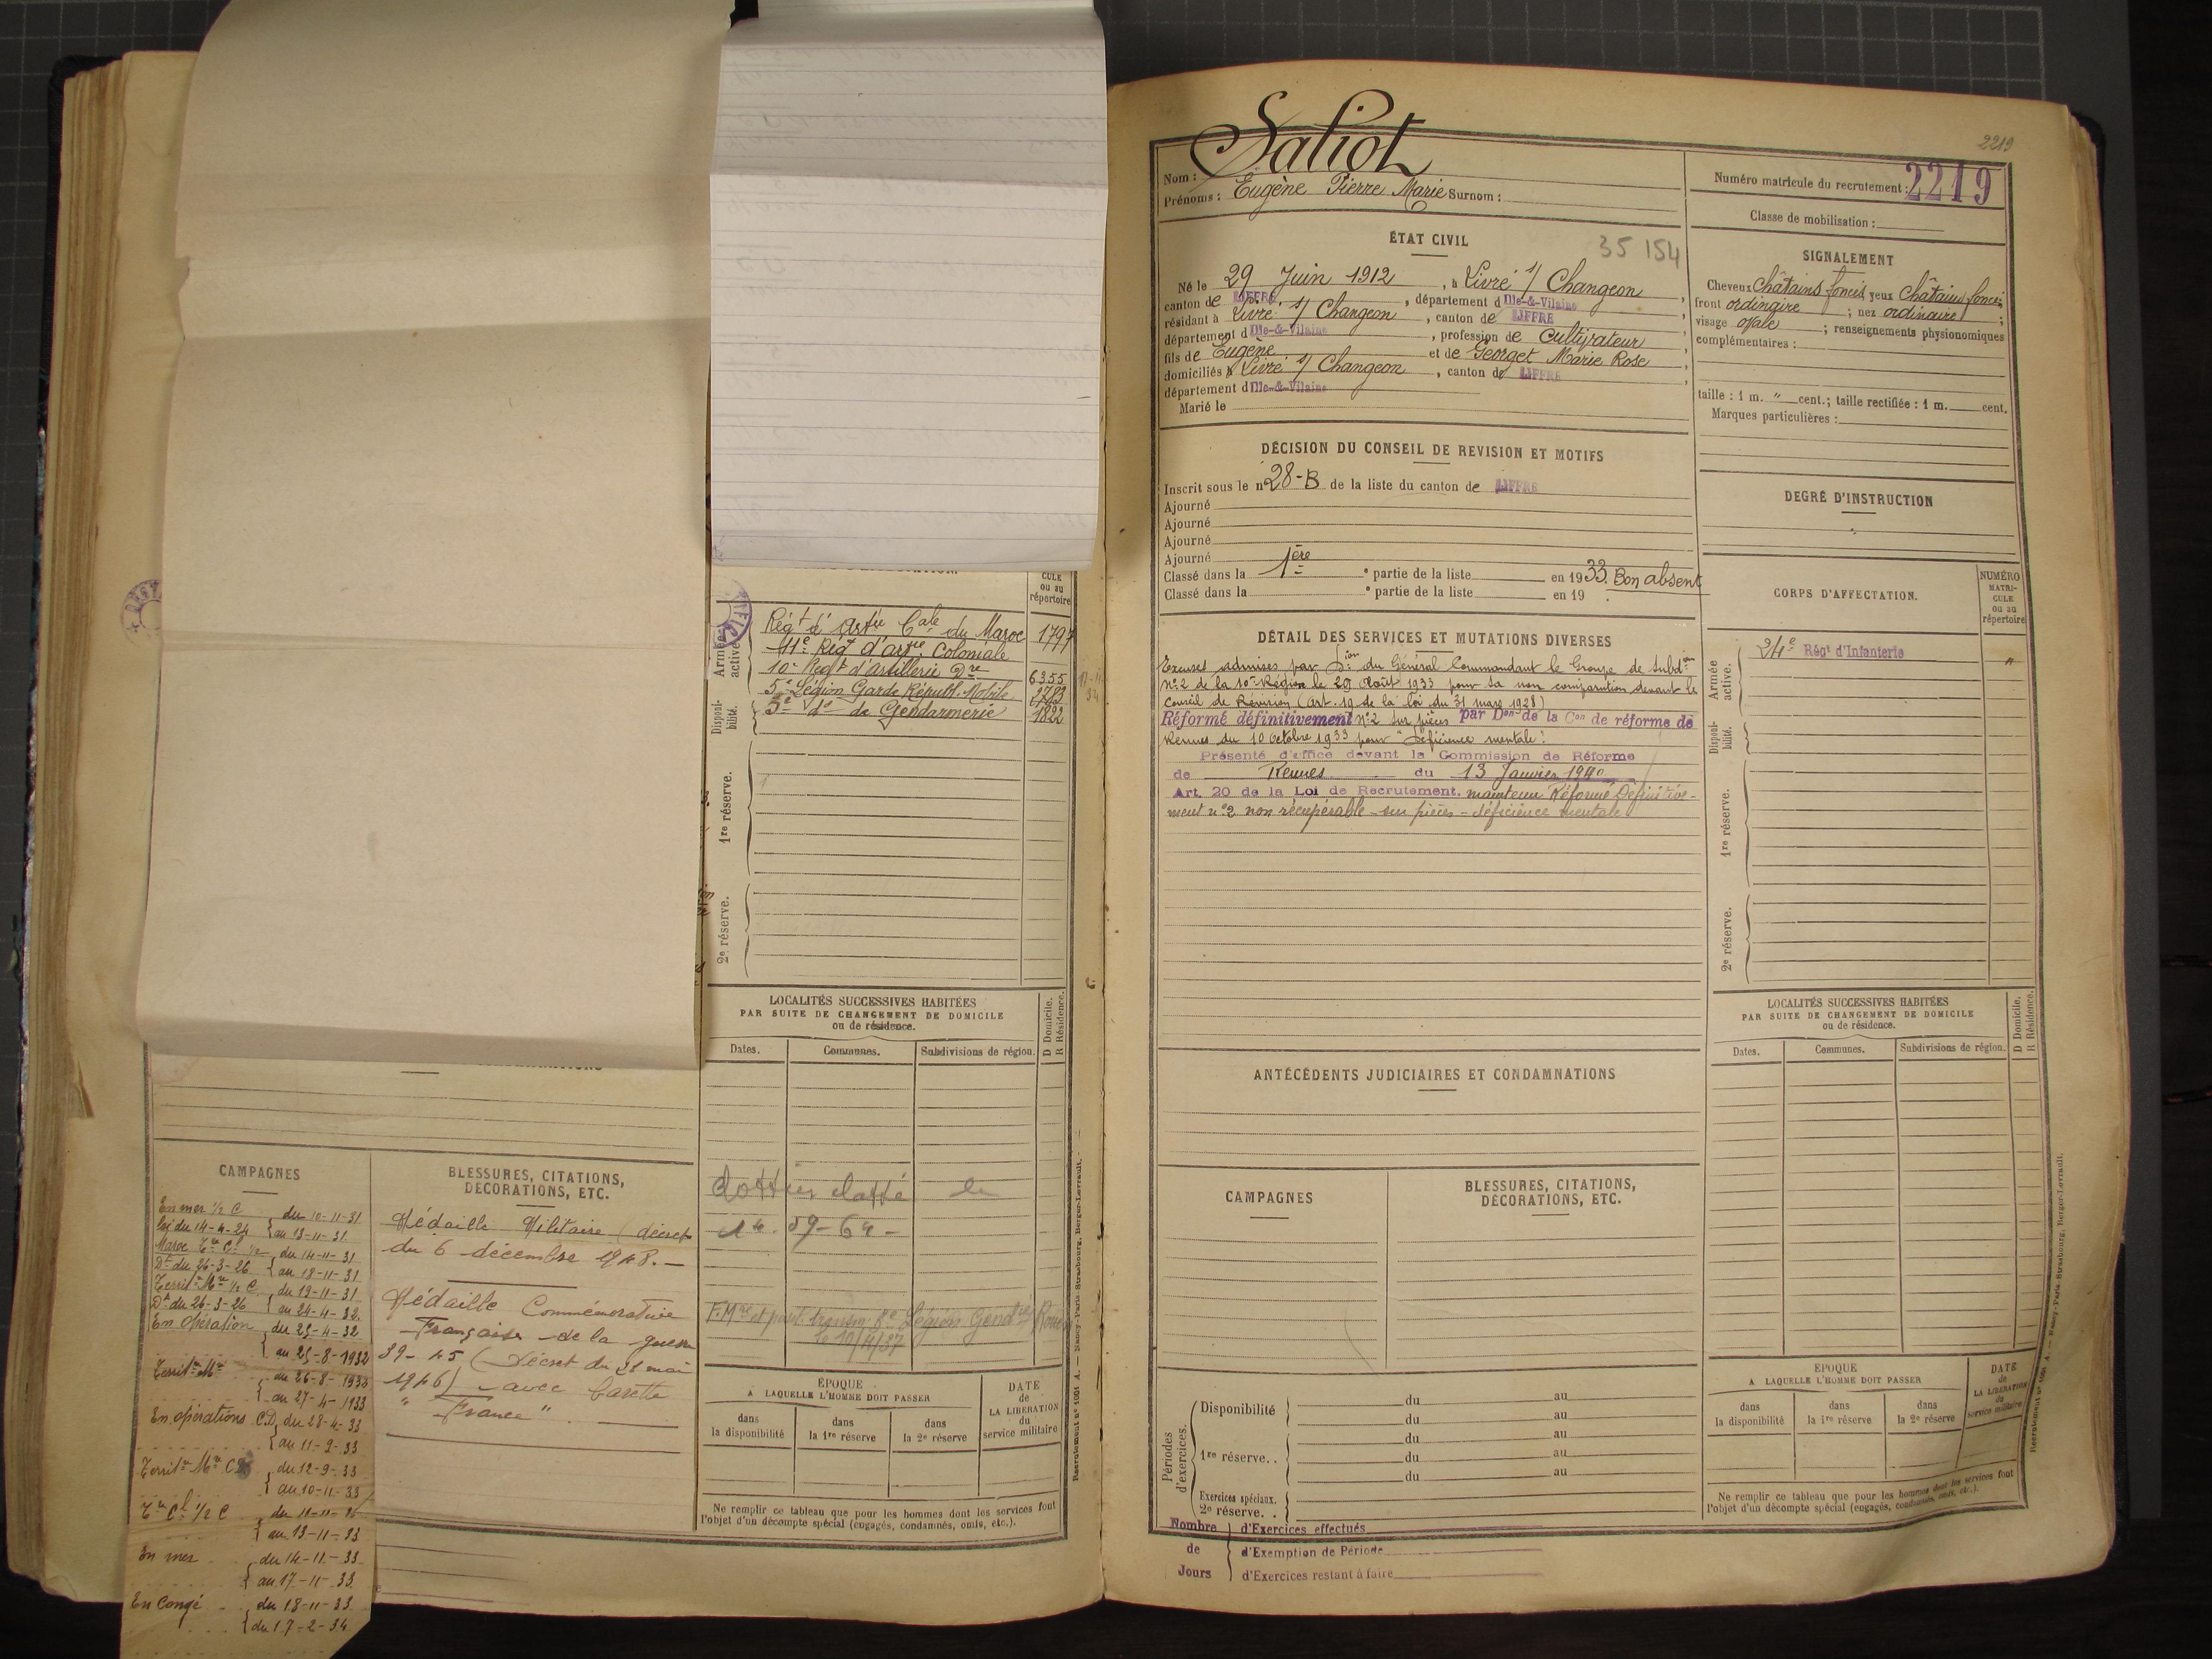 CULE
ou au
répertoire
Armée
active.
Régt d'Artie Cale du Maroc 1797
11e Régt d'artie Coloniale
10e Regt d'Artillerie Dre 6355
5e Légion Garde Républ. Mobile 1783
5e do de Gendarmerie 1822
Disponi-
bilité.
1re réserve.
2e réserve.
LOCALITÉS SUCCESSIVES HABITÉES
PAR SUITE DE CHANGEMENT DE DOMICILE
ou de résidence.
D Domicile.
R Résidence.
Dates. Communes. Subdivisions de région.
dossier classé le
F. Mre et punit. transm. Légion Gendie Rouen
le 10/4/37
ÉPOQUE
A LAQUELLE L'HOMME DOIT PASSER
DATE
de
LA LIBERATION
du
service militaire
dans
la disponibilité
dans
la 1re réserve
dans
la 2e réserve
Ne remplir ce tableau que pour les hommes dont les services font
l'objet d'un décompte spécial (engagés, condamnés, omis, etc.).
Recrutement no 1001 A. — Nancy-Paris-Strasbourg, Berger-Levrault.
CAMPAGNES
En mer 1/2 C du 10-11-31
loi du 14-4-24 au 13-11-31
Maroc 1/2 du 14-11-31
Dt du 26-3-26 au 18-11-31
Territre Mre 1/2 C. du 19-11-31
Dt du 26-3-26 au 24-4-32
En opération du 25-4-32
au 25-8-1932
Territre Mre du 26-8-1932
au 27-4-1933
En opérations C.D. du 28-4-33
au 11-9-33
Territre Mre CD du 12-9-33
au 10-11-33
1/2 C du 11-11-33
au 13-11-33
En mer du 14-11-33
au 17-11-33
En Congé du 18-11-33
du 17-2-34
BLESSURES, CITATIONS,
DÉCORATIONS, ETC.
Médaille Militaire (décret
du 6 décembre 1948. —
Médaille Commémorative
Française de la guerre
39-45 (Décret du 21 mai
1946) avec Barette
" France "
2219
Nom : Saliot
Prénoms : Eugène Pierre Marie Surnom :
Numéro matricule du recrutement : 2219
Classe de mobilisation :
ÉTAT CIVIL
35 154
Né le 29 Juin 1912, à Livré s/ Changeon,
canton de LIFFRE, département d Ille-&-Vilaine
résidant à Livré s/ Changeon, canton de LIFFRE
département d Ille-&-Vilaine, profession de Cultivateur,
fils de Eugène et de Georget Marie Rose,
domiciliés à Livré s/ Changeon, canton de LIFFRE,
département d Ille-&-Vilaine
Marié le
SIGNALEMENT
Cheveux Châtains foncés yeux Châtains foncés;
front ordinaire ; nez ordinaire ;
visage ovale ; renseignements physionomiques
complémentaires :
taille : 1 m. " cent.; taille rectifiée : 1 m. cent.
Marques particulières :
DÉCISION DU CONSEIL DE REVISION ET MOTIFS
Inscrit sous le no 28-B de la liste du canton de LIFFRE
Ajourné
Ajourné
Ajourné
Ajourné
Classé dans la 1ère e partie de la liste en 1933. Bon absent
Classé dans la e partie de la liste en 19 .
DEGRÉ D'INSTRUCTION
CORPS D'AFFECTATION.
NUMÉRO
MATRI-
CULE
ou au
répertoire
DÉTAIL DES SERVICES ET MUTATIONS DIVERSES
Excuses admises par Don du Général Commandant le Groupe de Subdon
No 2 de la 10e Région le 29 Août 1933 pour sa non comparution devant le
Conseil de Révision (art. 19 de la loi du 31 mars 1928)
Réformé définitivement No 2 sur pièces par Don de la Con de réforme de
Rennes du 10 octobre 1933 pour "Déficience mentale".
Présenté d'office devant la Commission de Réforme
de Rennes du 13 Janvier 1940
Art. 20 de la Loi de Recrutement. maintenu Réformé Définitive-
ment no 2 non récupérable - sur pièces - déficience mentale
Armée
active.
24e Régt d'Infanterie "
Disponi-
bilité.
1re réserve.
2e réserve.
LOCALITÉS SUCCESSIVES HABITÉES
PAR SUITE DE CHANGEMENT DE DOMICILE
ou de résidence.
D Domicile.
R Résidence.
Dates. Communes. Subdivisions de région.
ANTÉCÉDENTS JUDICIAIRES ET CONDAMNATIONS
CAMPAGNES
BLESSURES, CITATIONS,
DÉCORATIONS, ETC.
ÉPOQUE
A LAQUELLE L'HOMME DOIT PASSER
DATE
de
LA LIBERATION
du
service militaire
dans
la disponibilité
dans
la 1re réserve
dans
la 2e réserve
Ne remplir ce tableau que pour les hommes dont les services font
l'objet d'un décompte spécial (engagés, condamnés, omis, etc.).
Recrutement no 1001 A. — Nancy-Paris-Strasbourg, Berger-Levrault.
Périodes
d'exercices.
Disponibilité
du au
du au
du au
1re réserve..
du au
du au
Exercices spéciaux.
2e réserve..
Nombre
de
Jours
d'Exercices effectués
d'Exemption de Période
d'Exercices restant à faire